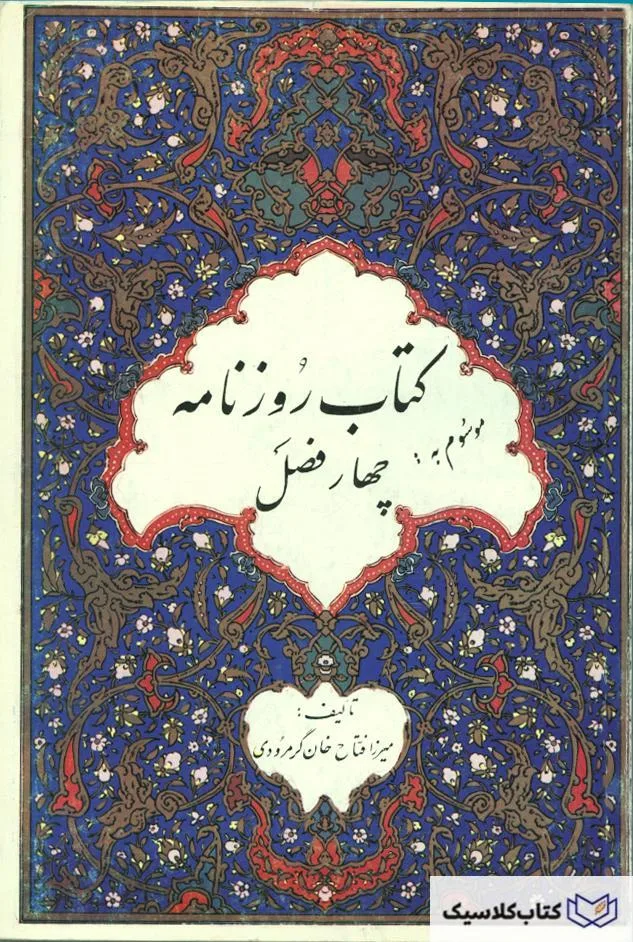 کتاب روزنامه
موسوم به:
چهار فصل
تالیف:
میرزا فتاح خان گرمرودی
کتاب کلاسیک